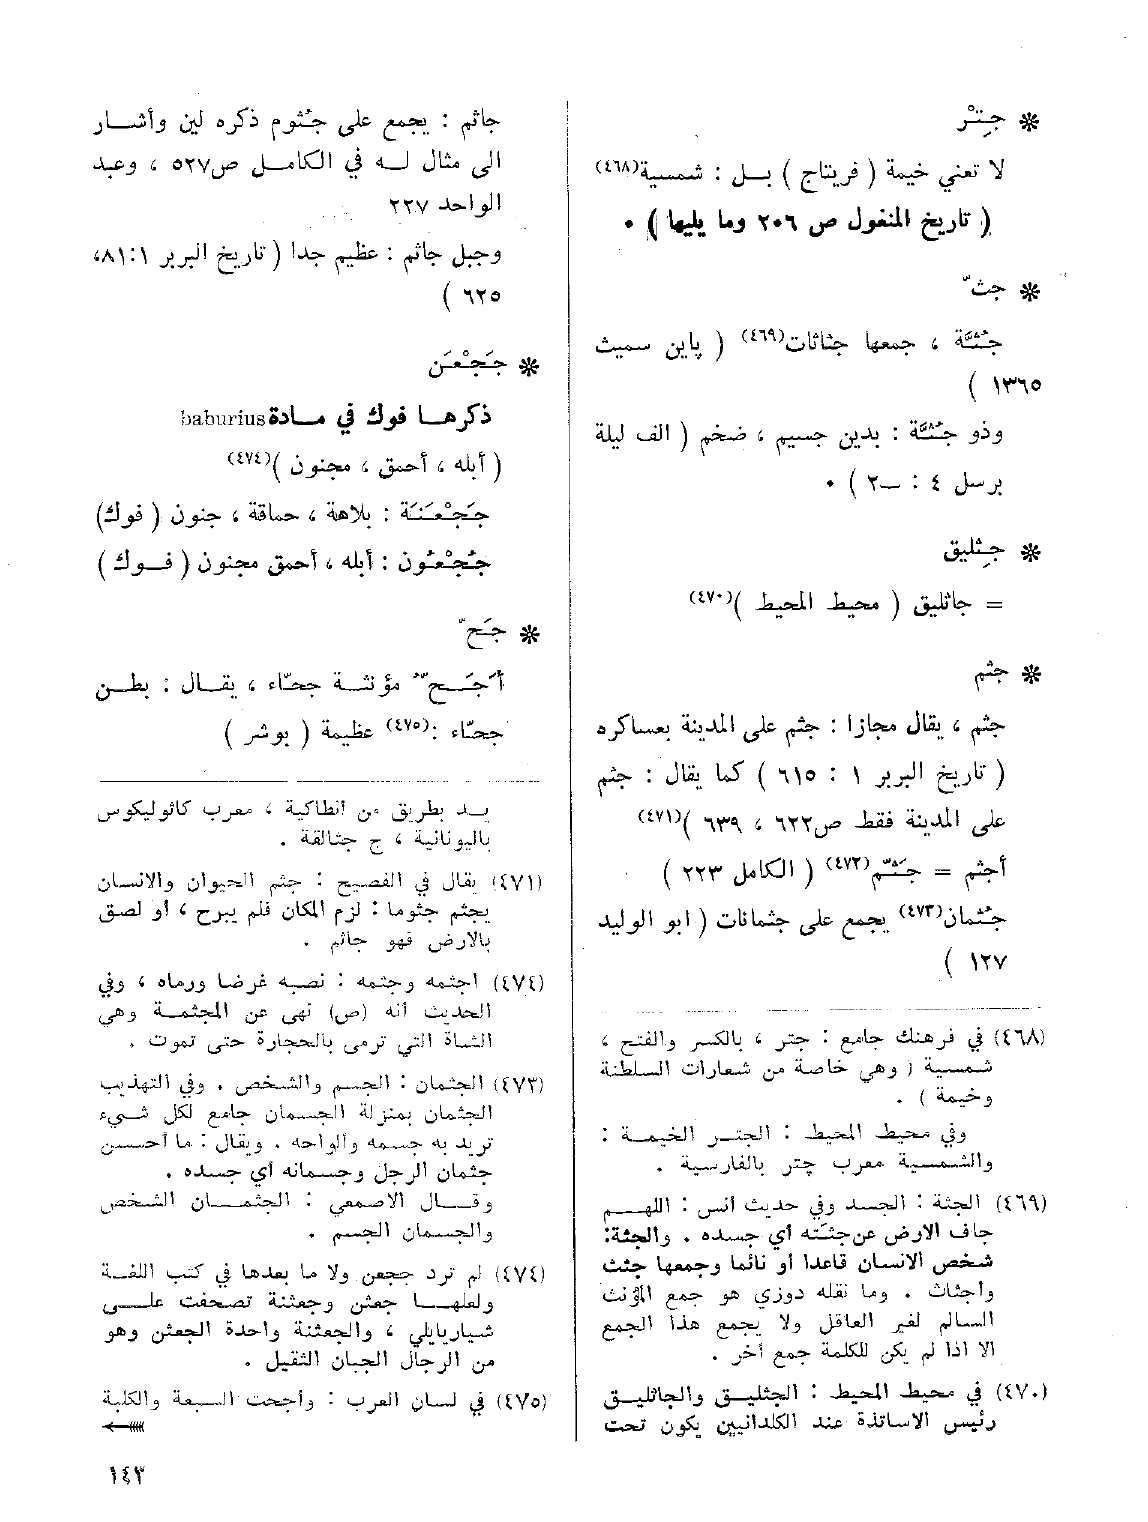 ❋ جِتْر
لا تعني خيمة ( فريتاج ) بـل : شمسية(٤٦٨)
( تاريخ المنغول ص ٢٠٦ وما يليها ) ٠
❋ جثّ
جُثَّة ، جمعها جثاثات(٤٦٩) ( پاين سميث
١٣٦٥ )
وذو جُثَّة : بدين جسيم ، ضخم ( الف ليلة
برسل ٤ : ــ٢ ) ٠
❋ جِثليق
= جاثليق ( محيط المحيط )(٤٧٠)
❋ جثم
جثم ، يقال مجازا : جثم على المدينة بعساكره
( تاريخ البربر ١ : ٦١٥ ) كما يقال : جثم
على المدينة فقط ص٦٢٢ ، ٦٣٩ )(٤٧١)
أجثم = جَثَّم(٤٧٢) ( الكامل ٢٢٣ )
جُثمان(٤٧٣) يجمع على جثمانات ( ابو الوليد
١٢٧ )
(٤٦٨) في فرهنك جامع : جتر ، بالكسر والفتح ،
شمسية ( وهي خاصة من شعارات السلطنة
وخيمة ) .
وفي محيط المحيط : الجتـر الخيمـة :
والشمسية معرب چتر بالفارسية .
(٤٦٩) الجثة : الجسد وفي حديث أنس : اللهـم
جاف الارض عن جثته أي جسده . والجثة:
شخص الانسان قاعدا أو نائما وجمعها جثث
وأجثاث . وما نقله دوزي هو جمع المؤنث
السالم لغير العاقل ولا يجمع هذا الجمع
الا اذا لم يكن للكلمة جمع آخر .
(٤٧٠) في محيط المحيط : الجثليق والجاثليق
رئيس الاساتذة عند الكلدانيين يكون تحت
جاثم : يجمع على جثوم ذكره لين وأشـار
الى مثال لـه في الكامـل ص٥٢٧ ، وعبد
الواحد ٢٢٧
وجبل جاثم : عظيم جدا ( تاريخ البربر ١:٨١،
٦٢٥ )
❋ جَجْعَن
ذكرهـا فوك في مـادة baburius
( أبله ، أحمق ، مجنون )(٤٧٤)
جَجْعَنَة : بلاهة ، حماقة ، جنون ( فوك)
جُجْعُون : أبله ، أحمق مجنون ( فـوك )
❋ جَحّ
أجَـحّ مؤنثـة جحّاء ، يقـال : بطـن
جحّاء :(٤٧٥) عظيمة ( بوشر )
يـد بطريق من أنطاكية ، معرب كاثوليكوس
باليونانية ، ج جثالقة .
(٤٧١) يقال في الفصيح : جثم الحيوان والانسان
يجثم جثوما : لزم المكان فلم يبرح ، أو لصق
بالارض فهو جاثم .
(٤٧٤) اجثمه وجثمه : نصبه غرضا ورماه ، وفي
الحديث أنه (ص) نهى عن المجثمـة وهي
الشاة التي ترمى بالحجارة حتى تموت .
(٤٧٣) الجثمان : الجسم والشخص . وفي التهذيب
الجثمان بمنزلة الجسمان جامع لكل شيء
تريد به جسمه وألواحه . ويقال : ما أحسن
جثمان الرجل وجسمانه أي جسده .
وقـال الاصمعي : الجثمـان الشخص
والجسمان الجسم .
(٤٧٤) لم ترد ججعن ولا ما بعدها في كتب اللغة
ولعلهـا جعثن وجعثنة تصحفت علـى
شياربايلي ، والجعثنة واحدة الجعثن وهو
من الرجال الجبان الثقيل .
(٤٧٥) في لسان العرب : وأجحت السبعة والكلبة
١٤٣